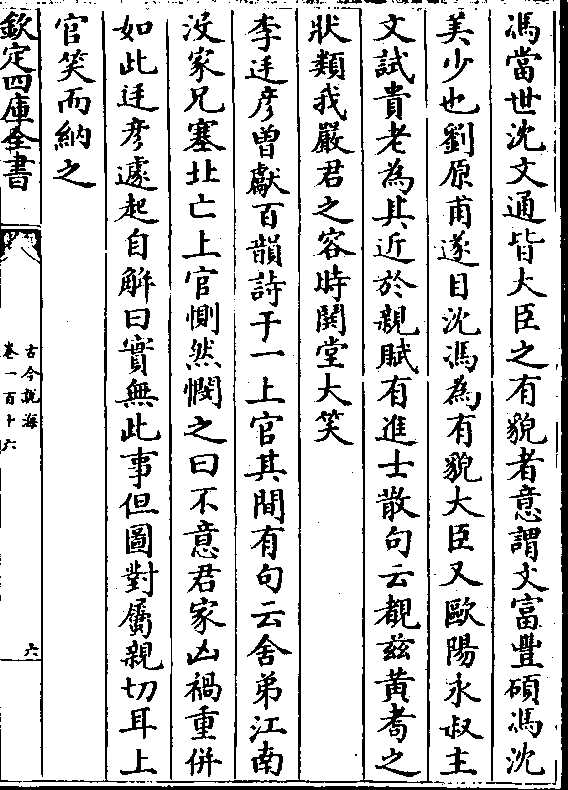 馮當世沈文通皆大臣之有貌者意謂文富豐碩馮沈
美少也劉原甫遂目沈馮為有貌大臣又歐陽永叔主
文試貴老為其近於親賦有進士散句云覩兹黃耉之
狀類我嚴君之容時閧堂大笑
李廷彦曽獻百韻詩于一上官其間有句云舍弟江南
没家兄塞北亡上官惻然憫之曰不意君家凶禍重併
如此廷彦遽起自解曰實無此事但圖對屬親切耳上
官笑而納之
欽定四庫全書
古今說海
卷一百十六
六